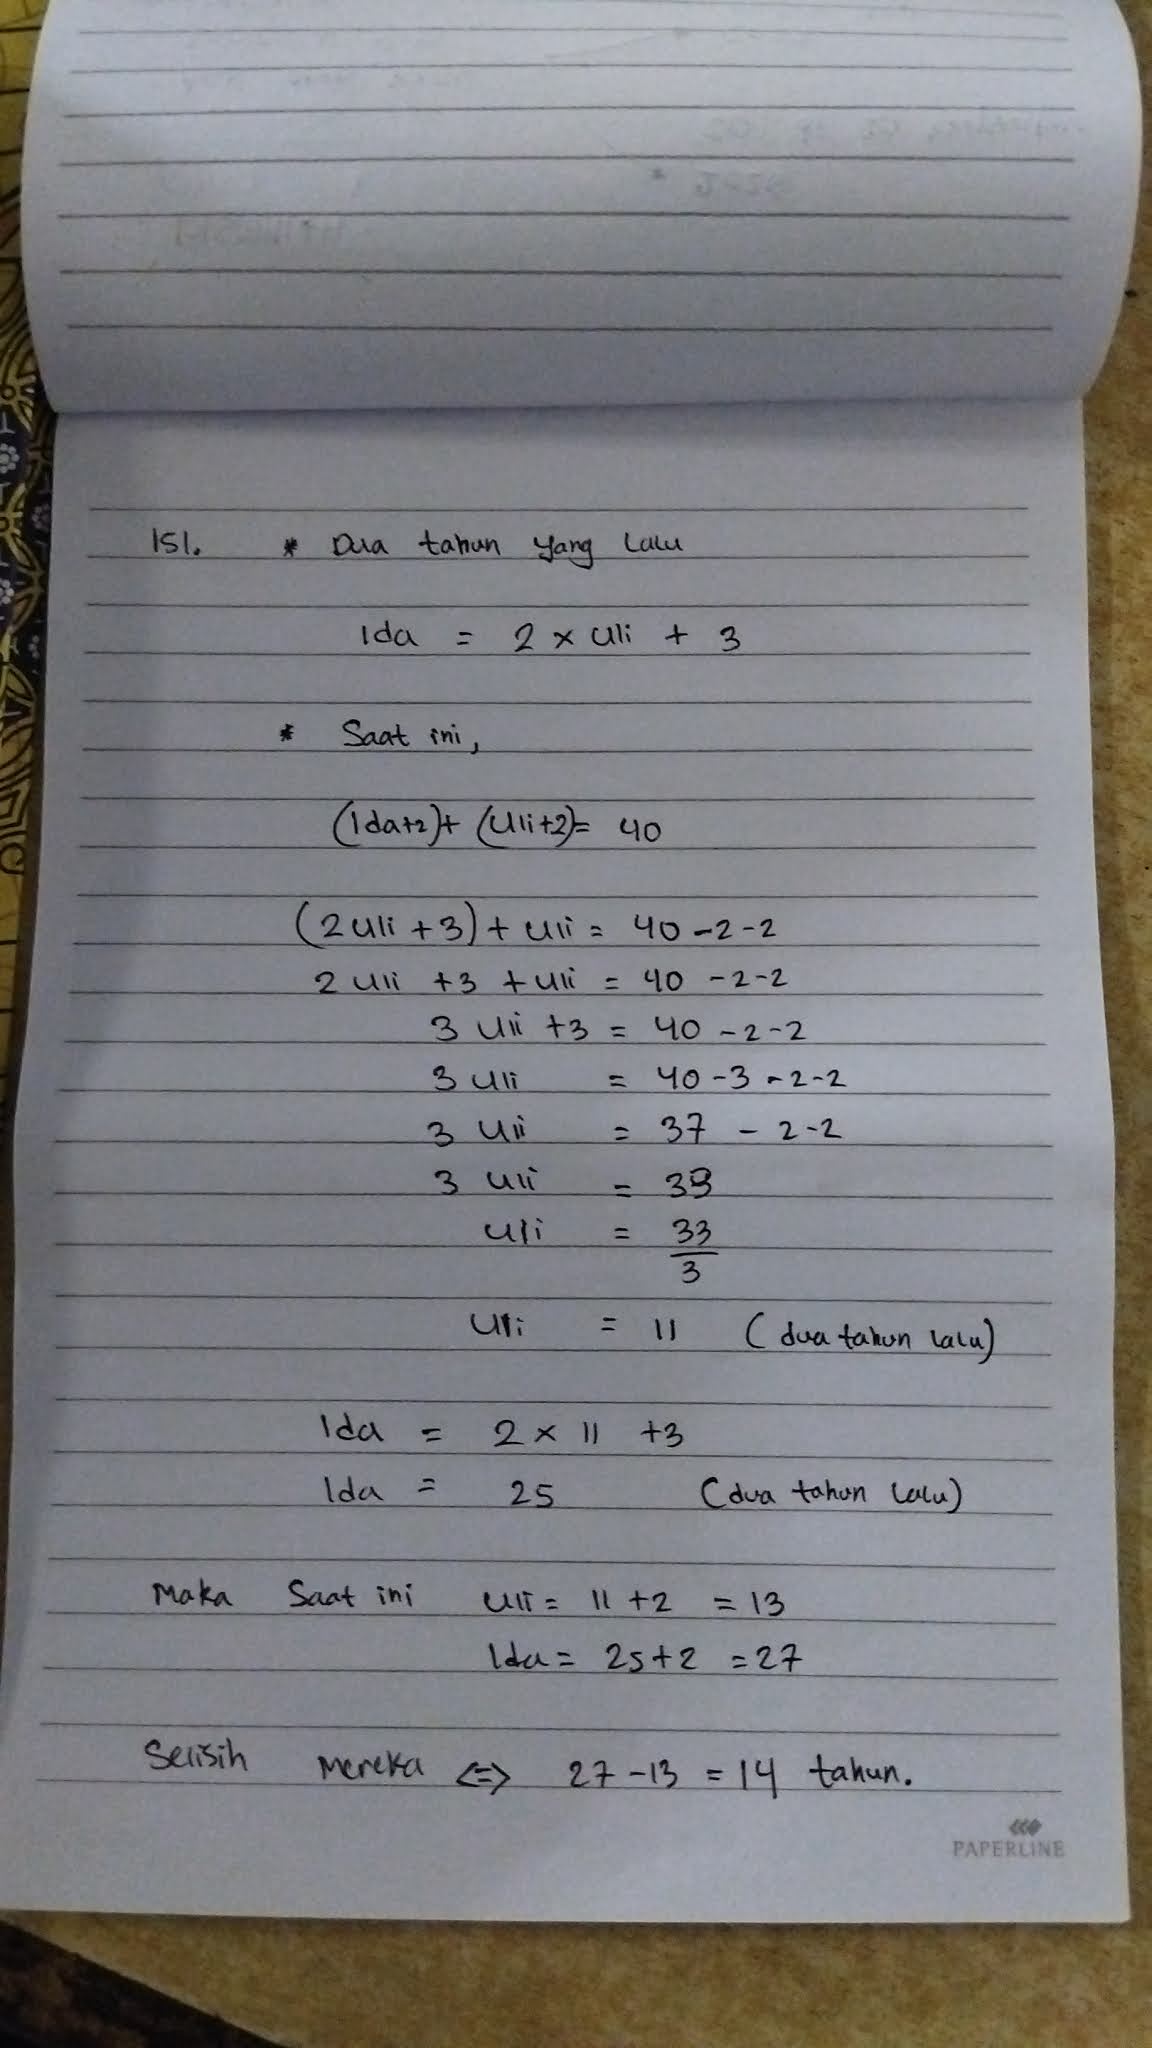 151. * Dua tahun yang lalu
Ida = 2 x Uli + 3
* Saat ini,
(Ida+2)+ (Uli+2)= 40
(2 Uli + 3) + Uli = 40 - 2 - 2
2 Uli + 3 + Uli = 40 - 2 - 2
3 Uli + 3 = 40 - 2 - 2
3 Uli = 40 - 3 - 2 - 2
3 Uli = 37 - 2 - 2
3 Uli = 33
Uli = 33
3
Uli = 11 (dua tahun lalu)
Ida = 2 x 11 +3
Ida = 25 (dua tahun lalu)
Maka Saat ini Uli = 11 + 2 = 13
Ida = 25+2 = 27
Selisih Mereka <=> 27 - 13 = 14 tahun.
PAPERLINE